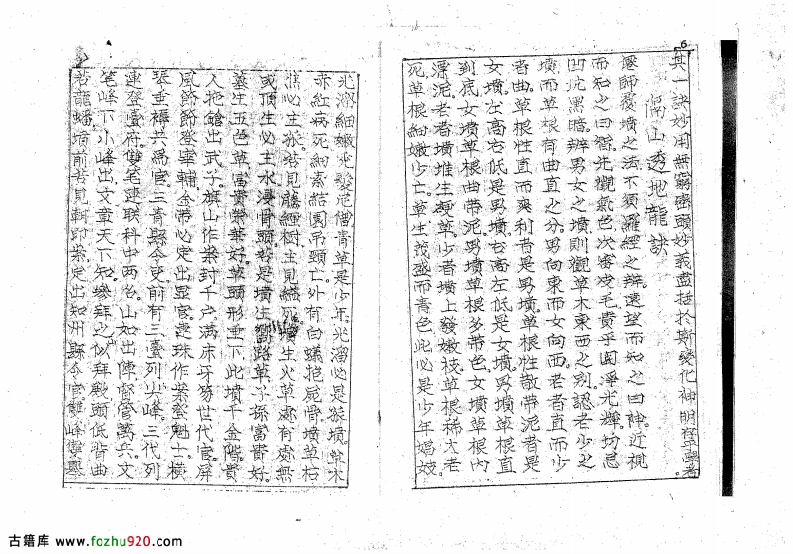 6
其一訣妙用無窮密頭妙義盡括於斯變化神明在學者
隔山透地龍訣
歷師覆墳之法不須羅經之辨遠望而知之曰神近視
而知之曰術先觀氣色次審老光貴乎圓淨光輝切忌
凹坑黑暗辨男女之墳則觀草木東西之別認老少之
墳而草根有曲直之分男向東而女向西老者直而少
者曲草根性直而爽利者是男墳草根性散帶泥者是
女墳左高右低是男墳右高左低是女墳男墳草根直
到底女墳草根曲帶泥男墳草根多帶色女墳草根內
漂泥老者墳堆生硬草少者墳上發嫩枝草根稀大老
死草根細嫩少亡草生茂盛而青色此必是少年
光溜細嫩僧青草是少年光溜必是墳草木
赤紅病死細紊結團吊頸亡外有白蟻抱屍骨墳草枯
焦必主見藤纏樹主見縊死墳生火草處有處無
或頂生必主水浸骨頭若是墳生路草子孫富貴好
墓生五色草富貴榮華好草頭形垂下此墳千金階貴
人抱鎗出武子旗山作案封千戶滿床牙笏世代官屏
風節節登畢輔金帶必定出显官連珠作案登魁士橫
琴垂褥共為官三台縣令史前有三臺列尖峰三代列
連登臺府雙筆連聯科中兩名山如出陣督管萬兵文
筆峰下小峰出文章天下知參拜之似拜殿頭低背曲
若龍蟠墳前若見輔印案定出知州縣令官
古籍库 www.fozhu920.com